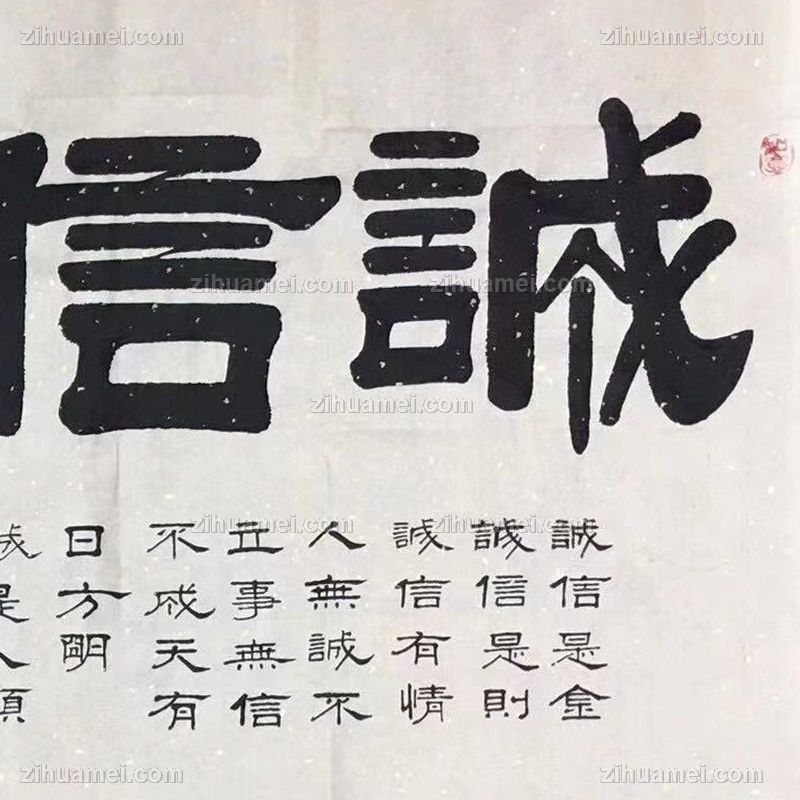 zihuamei.com
zihuamei.com
誠信
zihuamei.com
zihuamei.com
zihuamei.com
zihuamei.com
zihuamei.com
誠信是金
誠信是則
誠信有情
人無誠不
立事無信
不成天有
日方明
zihuamei.com
zihuamei.com